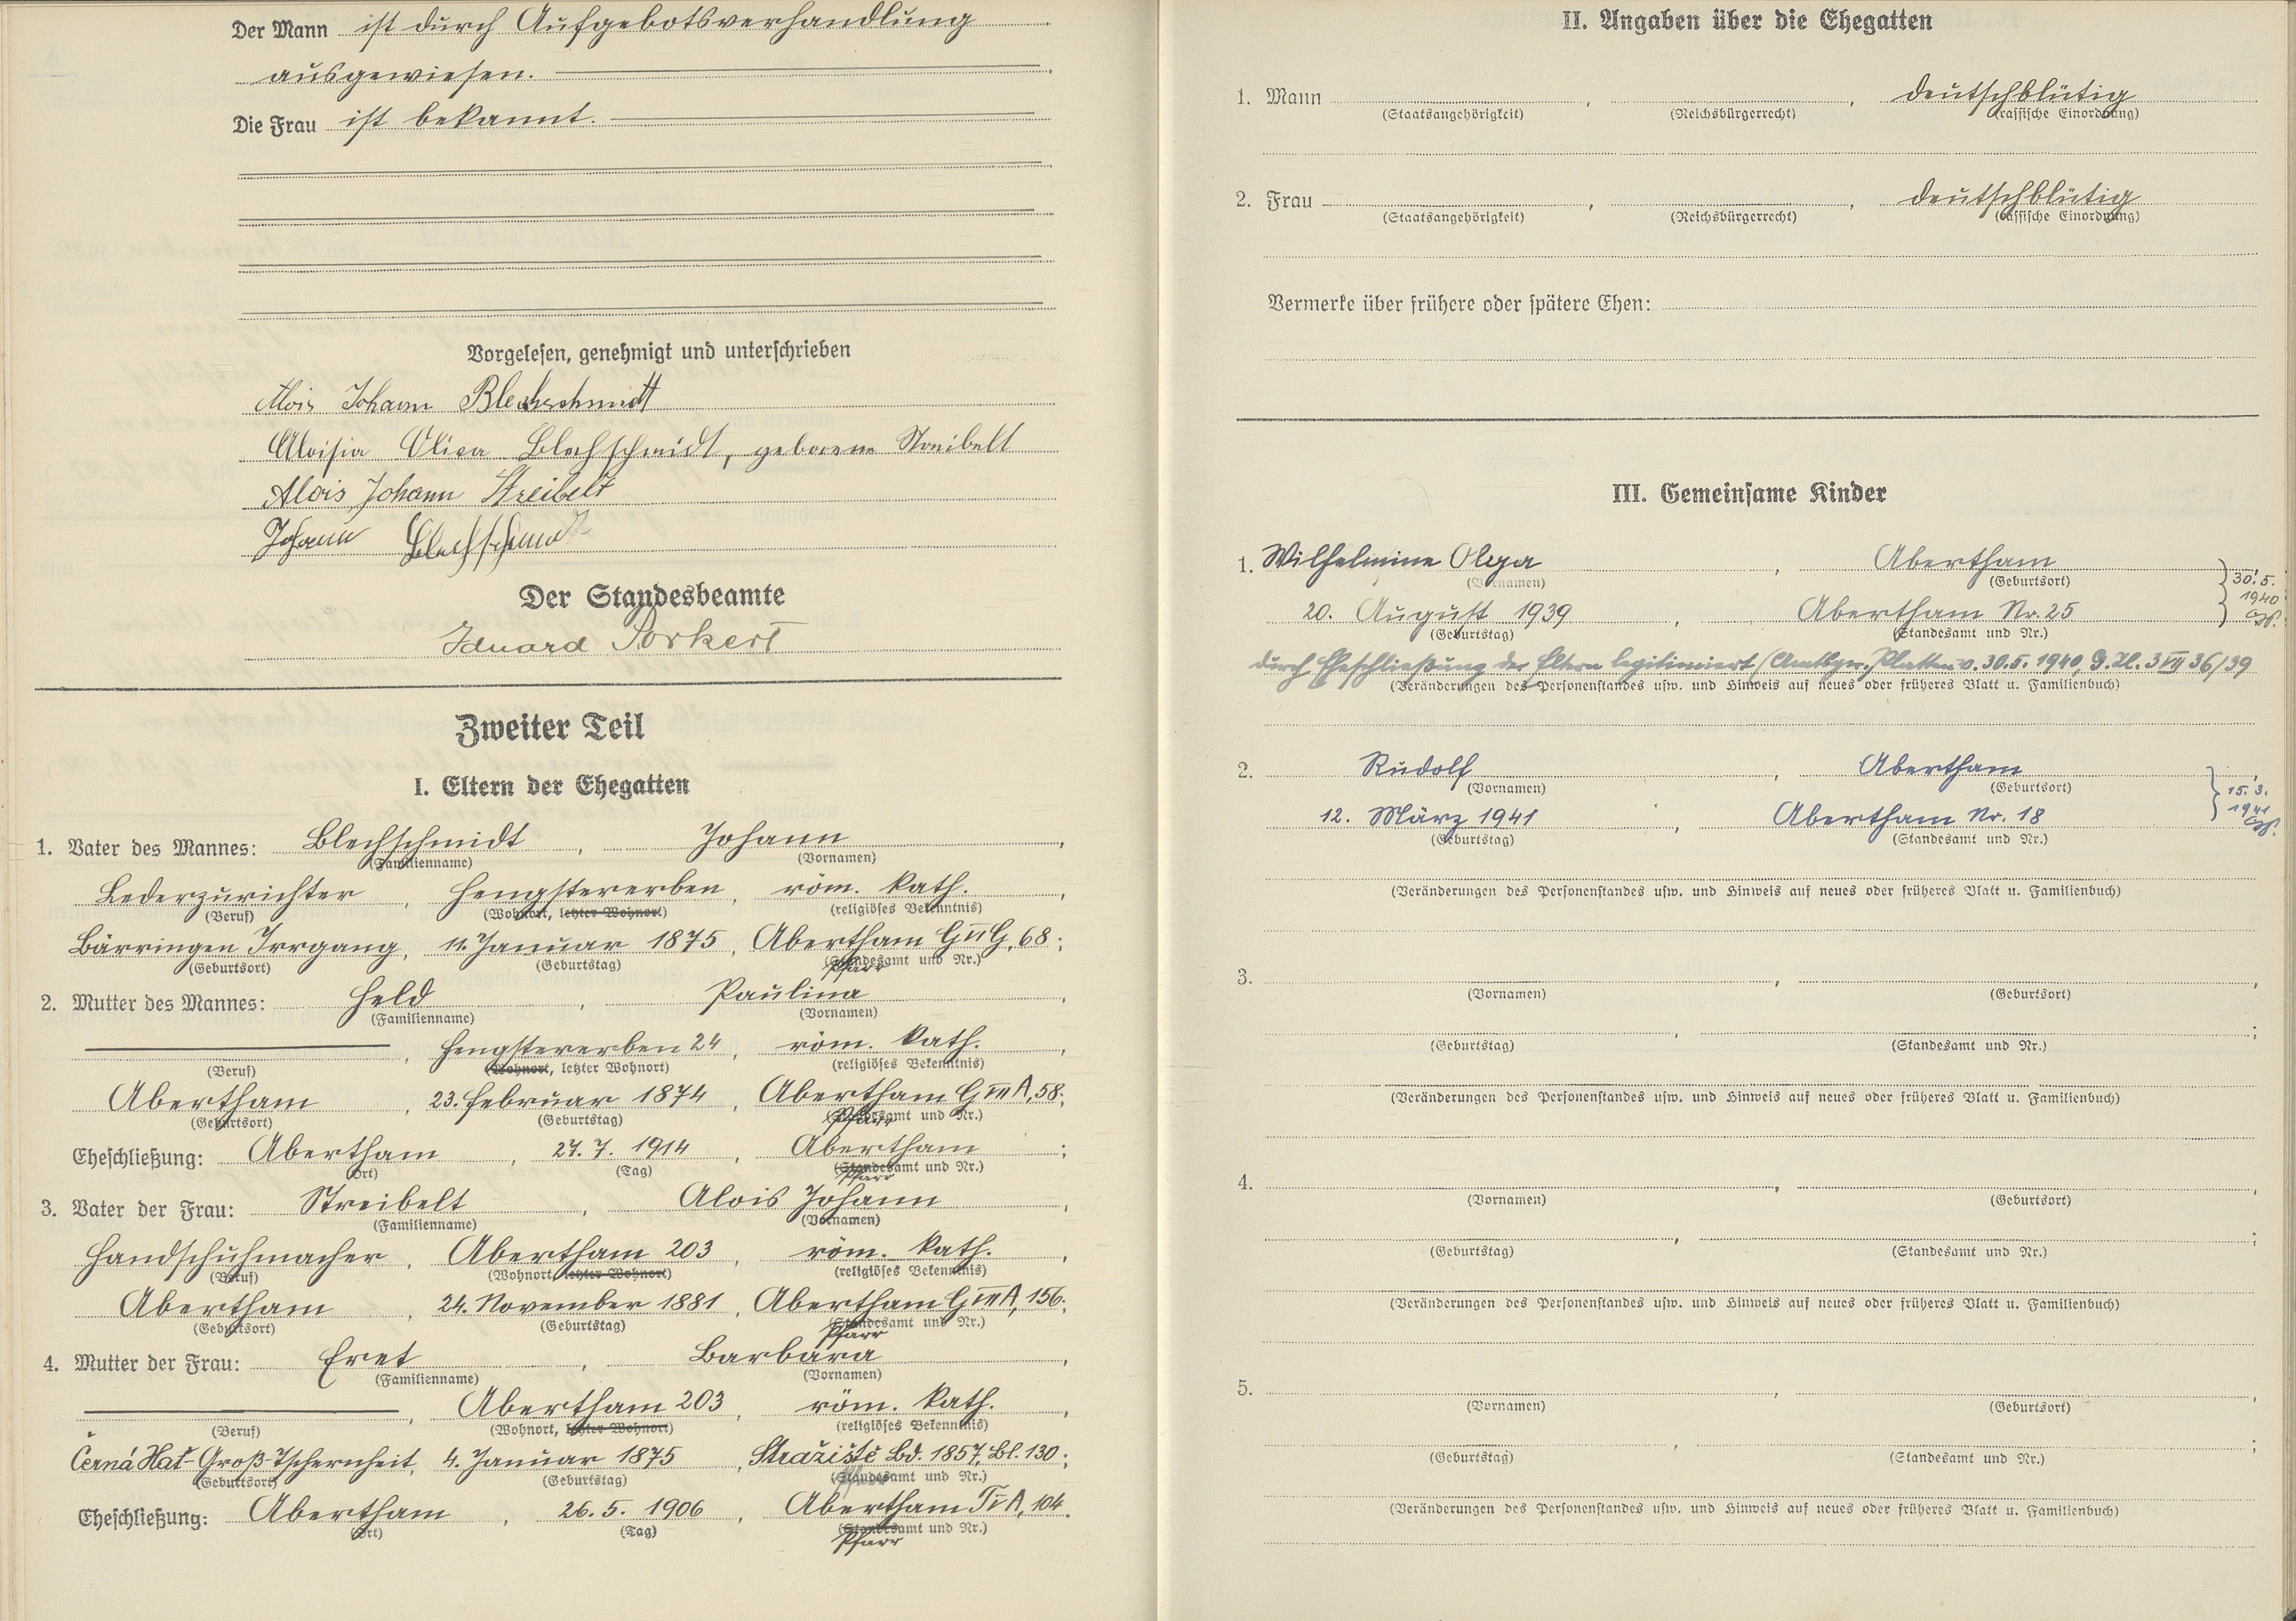 Der Mann ist durch Aufgebotsverhandlung
ausgewiesen.
Die Frau ist bekannt.
Vorgelesen, genehmigt und unterschrieben
Alois Johann Blechschmidt
Aloisia Blechschmidt, geborene Streibelt
Alois Johann Streibelt
Johann Blechschmidt
Der Standesbeamte
Eduard
Zweiter Teil
I. Eltern der Ehegatten
1. Vater des Mannes: Blechschmidt, Johann,
(Familienname) (Vornamen)
Lederzurichter, Hengstererben, röm. kath.,
(Beruf) (Wohnort, letzter Wohnort) (religiöses Bekenntnis)
Bärringen Irrgang, 11. Januar 1875, Abertham G VI G, 68;
(Geburtsort) (Geburtstag) (Standesamt und Nr.)
Pfarr
2. Mutter des Mannes: Held, Paulina,
(Familienname) (Vornamen)
, Hengstererben 24, röm. kath.,
(Beruf) (Wohnort, letzter Wohnort) (religiöses Bekenntnis)
Abertham, 23. Februar 1874, Abertham G VII A, 58;
(Geburtsort) (Geburtstag) (Standesamt und Nr.)
Pfarr
Eheschließung: Abertham, 27. 7. 1914, Abertham;
(Ort) (Tag) (Standesamt und Nr.)
Pfarr
3. Vater der Frau: Streibelt, Alois Johann,
(Familienname) (Vornamen)
Handschuhmacher, Abertham 203, röm. kath.,
(Beruf) (Wohnort, letzter Wohnort) (religiöses Bekenntnis)
Abertham, 24. November 1881, Abertham G VII A, 156;
(Geburtsort) (Geburtstag) (Standesamt und Nr.)
Pfarr
4. Mutter der Frau: Eret, Barbara,
(Familienname) (Vornamen)
, Abertham 203, röm. kath.,
(Beruf) (Wohnort, letzter Wohnort) (religiöses Bekenntnis)
Černá Hať-Groß-Tschernheit, 4. Januar 1875, Stražiště Bd. 1857, Bl. 130;
(Geburtsort) (Geburtstag) (Standesamt und Nr.)
Pfarr
Eheschließung: Abertham, 26. 5. 1906, Abertham T V A, 104.
(Ort) (Tag) (Standesamt und Nr.)
Pfarr
II. Angaben über die Ehegatten
1. Mann , , deutschblütig
(Staatsangehörigkeit) (Reichsbürgerrecht) (rassische Einordnung)
2. Frau , , deutschblütig
(Staatsangehörigkeit) (Reichsbürgerrecht) (rassische Einordnung)
Vermerke über frühere oder spätere Ehen:
III. Gemeinsame Kinder
1. Wilhelmine Olga, Abertham
(Vornamen) (Geburtsort)
30. 5.
1940
20. August 1939, Abertham Nr. 25
(Geburtstag) (Standesamt und Nr.)
durch Eheschließung der Eltern legitimiert (Amtsger. Platten v. 30. 5. 1940, 3 VII 36/39
(Veränderungen des Personenstandes usw. und Hinweis auf neues oder früheres Blatt u. Familienbuch)
2. Rudolf, Abertham
(Vornamen) (Geburtsort)
15. 3.
1941
12. März 1941, Abertham Nr. 18
(Geburtstag) (Standesamt und Nr.)
(Veränderungen des Personenstandes usw. und Hinweis auf neues oder früheres Blatt u. Familienbuch)
3. , ,
(Vornamen) (Geburtsort)
, ;
(Geburtstag) (Standesamt und Nr.)
(Veränderungen des Personenstandes usw. und Hinweis auf neues oder früheres Blatt u. Familienbuch)
4. , ,
(Vornamen) (Geburtsort)
, ;
(Geburtstag) (Standesamt und Nr.)
(Veränderungen des Personenstandes usw. und Hinweis auf neues oder früheres Blatt u. Familienbuch)
5. , ,
(Vornamen) (Geburtsort)
, ;
(Geburtstag) (Standesamt und Nr.)
(Veränderungen des Personenstandes usw. und Hinweis auf neues oder früheres Blatt u. Familienbuch)